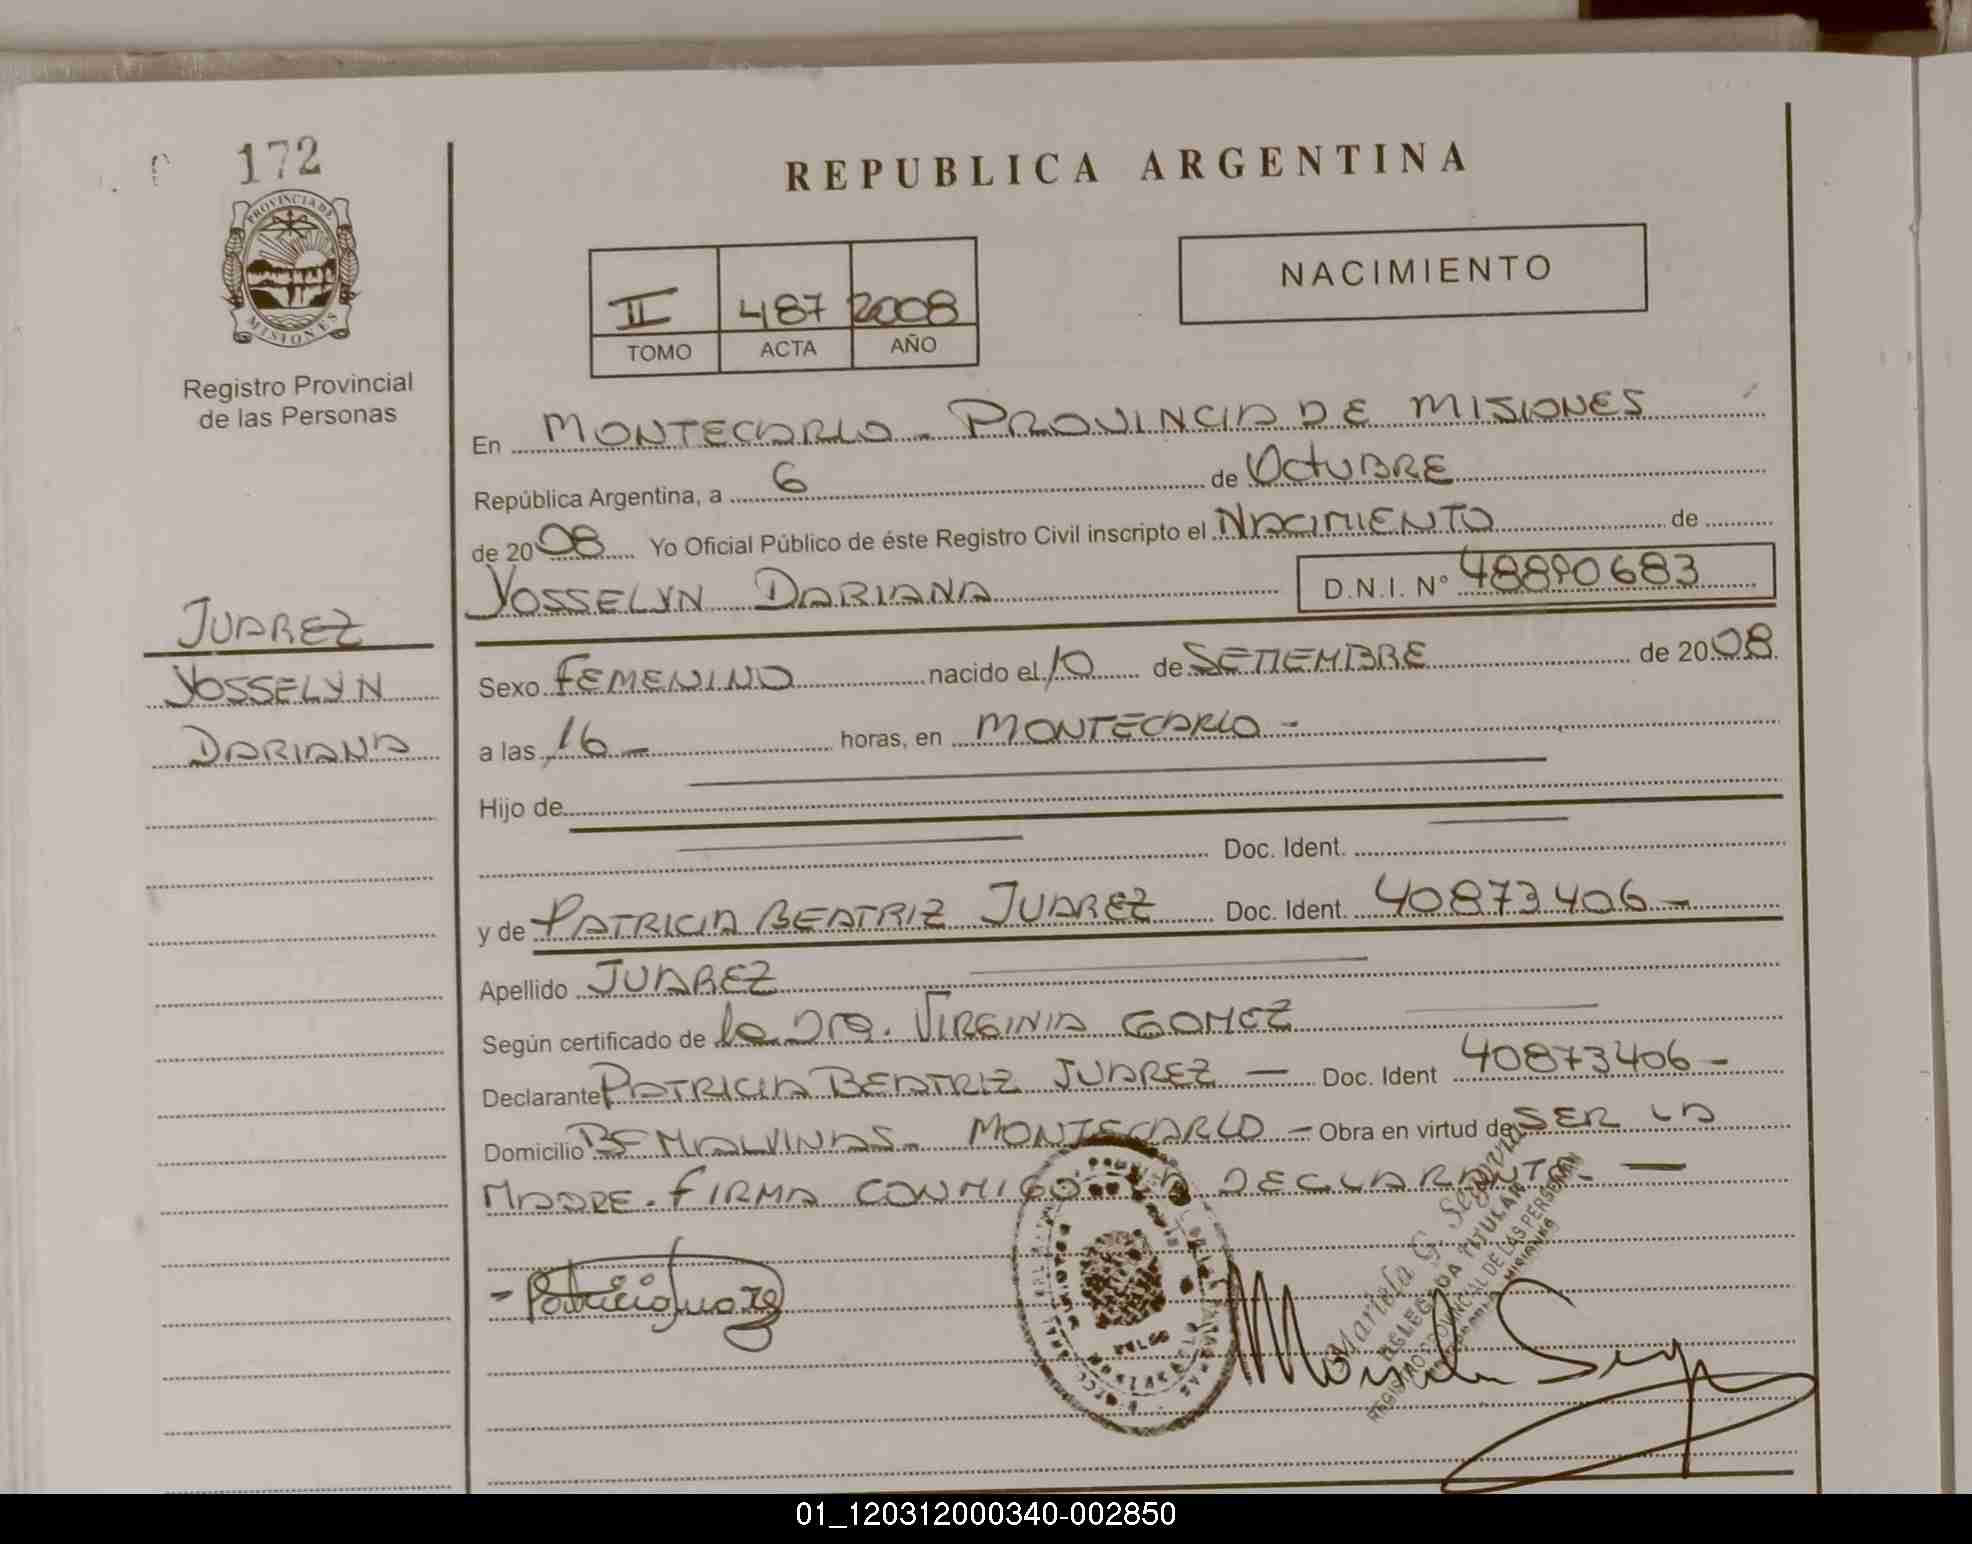 172
PROVINCIA DE
MISIONES
Registro Provincial
de las Personas
JUAREZ
YOSSELYN
DARIANA
REPUBLICA ARGENTINA
II 487 2008
TOMO ACTA AÑO
NACIMIENTO
En MONTECARLO - PROVINCIA DE MISIONES
República Argentina, a 6 de OctUBRE
de 2008 Yo Oficial Público de éste Registro Civil inscripto el NACIMIENTO de
YOSSELYN DARIANA D.N.I. N° 48890683
Sexo FEMENINO nacido el 10 de SETIEMBRE de 2008
a las 16 - horas, en MONTECARLO -
Hijo de
Doc. Ident.
y de PATRICIA BEATRIZ JUAREZ Doc. Ident. 40873406 -
Apellido JUAREZ
Según certificado de la Dra. VIRGINIA GOMEZ
Declarante PATRICIA BEATRIZ JUAREZ - Doc. Ident 40873406 -
Domicilio Bº MALVINAS - MONTECARLO - Obra en virtud de SER LA
MADRE. FIRMA CONMIGO LA DECLARANTE. -
- Patricia Juarez
Mariela G. Segovia
DELEGADA TITULAR
REGISTRO PROVINCIAL DE LAS PERSONAS
01_120312000340-002850